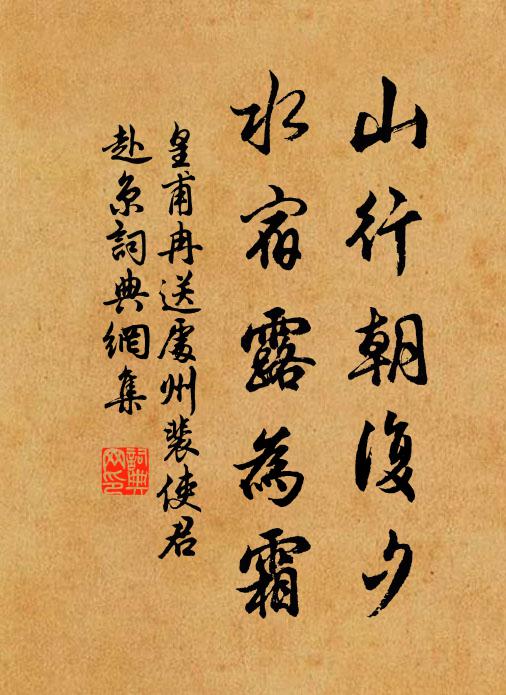 山行朝復夕
水宿露為霜
皇甫冉送處州裴使君
赴京詞典網集
詞典網印